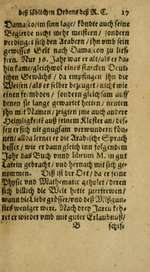 deß löblichen Ordens deß R. C. 17
Damascorum sinn lage/ kündte auch seine
Begierde nicht mehr meistern / sondern
verdingete sich den Arabern / jhn umb ein
gewisses Gelt nach Damascon zu lieffern.
Nur 16. Jahr war er alt als er dahin
kam/ gleichwol eines starcken Teutschen
Gewächs / da empfingen jhn die
Weisen / als er selber bezeuget / nicht wie
einen frembden / sondern gleichsam auff
denen sie lange gewartet hetten / nenten
jhn mit Namen / zeigten jhm auch andere
Heimligkeit auß seinem Kloster an / dessen
er sich nit gnugsam verwundern können
/ allda lernet er die Arabische Sprach
besser / wie er dann gleich inn folgendem
Jahr das Buch unnd librum M. in gut
Latein gebracht / und hernach mit sich genommen.
Diß ist der Ort / da er seine
Physic und Mathematic geholet / deren
sich billich die Welt hette zuerfrewen /
wann die Liebe grösser / und deß Mißgunstes
weniger were. Nach drey Jaren kehret
er wieder umb mit guter Erlaubnuß/
B schiffte